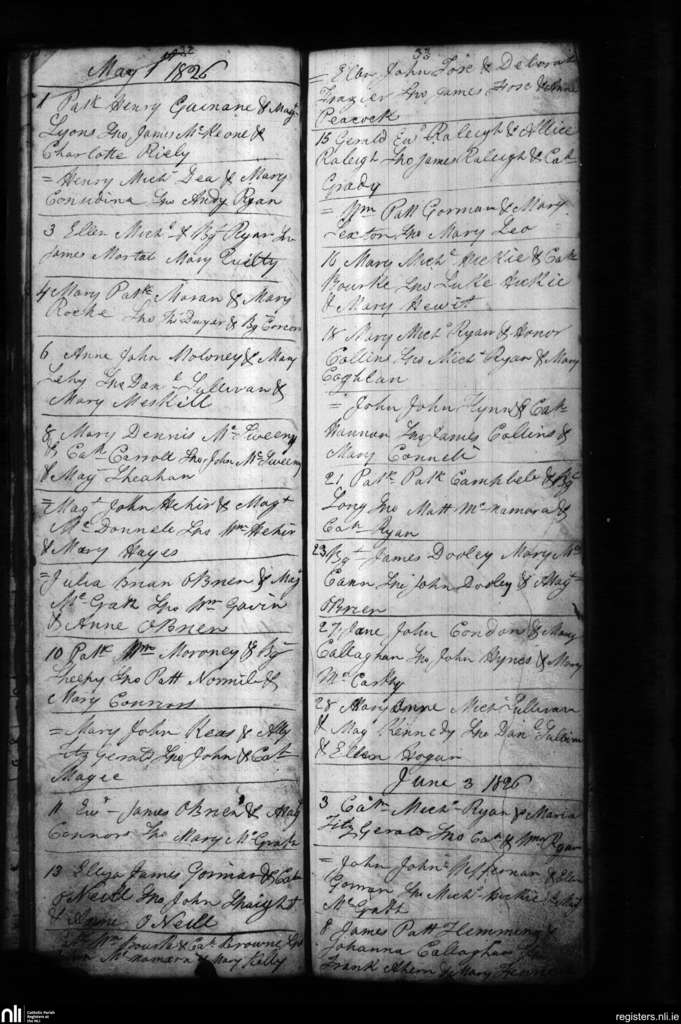 32
May 1st 1826
1 Patk Henry Guinane & Magt
Lyons Spo James McKeone &
Charlotte Riely
= Henry Michl Dea & Mary
Considina Spo Andy Ryan
3 Ellen Michl & Bgt Ryan Spo
James Mortal Mary Quilty
4 Mary Patk Moran & Mary
Roche Spo Ths Dwyer & Bg
6 Anne John Moloney & Mary
Lehy Spo Danl Sullivan &
Mary Meskill
8 Mary Dennis McSweeny
& Cath Carroll Spo John McSweeny
& Magt Sheahan
= Magt John Hehir & Magt
McDonnell Spo Wm Hehir
& Mary Hayes
= Julia Brian OBrien & Magt
McGrath Spo Wm Gavin
& Anne OBrien
10 Patk Wm Moroney & Bgt
Sheehy Spo Patt Normile &
Mary Connors
= Mary John Reas &
Fitz Gerald Spo John & Cat
Magee
11 James OBrien & Magt
Connors Spo Mary McGrath
13 Eliza James Gorman & Cath
O Neill Spo John Knaight
& Anne O Neill
Wm Bourke & Cath Browne Spo
McNamara & Mary Kelly
33
= Ellen John Fose & Deborah
Frazier Spo James Fose & Anne
Peacock
15 Gerald Ewd Raleigh & Allice
Raleigh Spo James Raleigh & Cath
Grady
= Wm Patt Gorman & Mary
Sexton Spo Mary Leo
16 Mary Michl Hickie & Cath
Bourke Spo Luke Hickie
& Mary Hewit
18 Mary Michl Ryan & Honor
Collins Spo Michl Ryan & Mary
Coghlan
= John John Flynn & Cath
Hannan Spo James Collins &
Mary Connell
21 Patk Patk Campbell & Bgt
Long Spo Matt McNamara &
Cath Ryan
23 Bgt James Dooley Mary Mc
Cann Spo John Dooley & Magt
OBrien
27 Jane John Condon & Mary
Callaghan Spo John Hynes & Mary
McCarthy
28 Mary Anne Michl Sullivan
& Magt Kennedy Spo Danl Sullivan
& Ellen Hogan
June 3 1826
3 Cath Michl Ryan & Maria
Fitz Gerald Spo Cath & Wm Ryan
= John John Heffernan & Ellen
Gorman Spo Michl Hickie & Magt
McGrath
8 James Patt Flemming &
Johanna Callaghan Spo
Frank Ahern & Mary
nli
Catholic Parish
Registers at
the NLI
registers.nli.ie